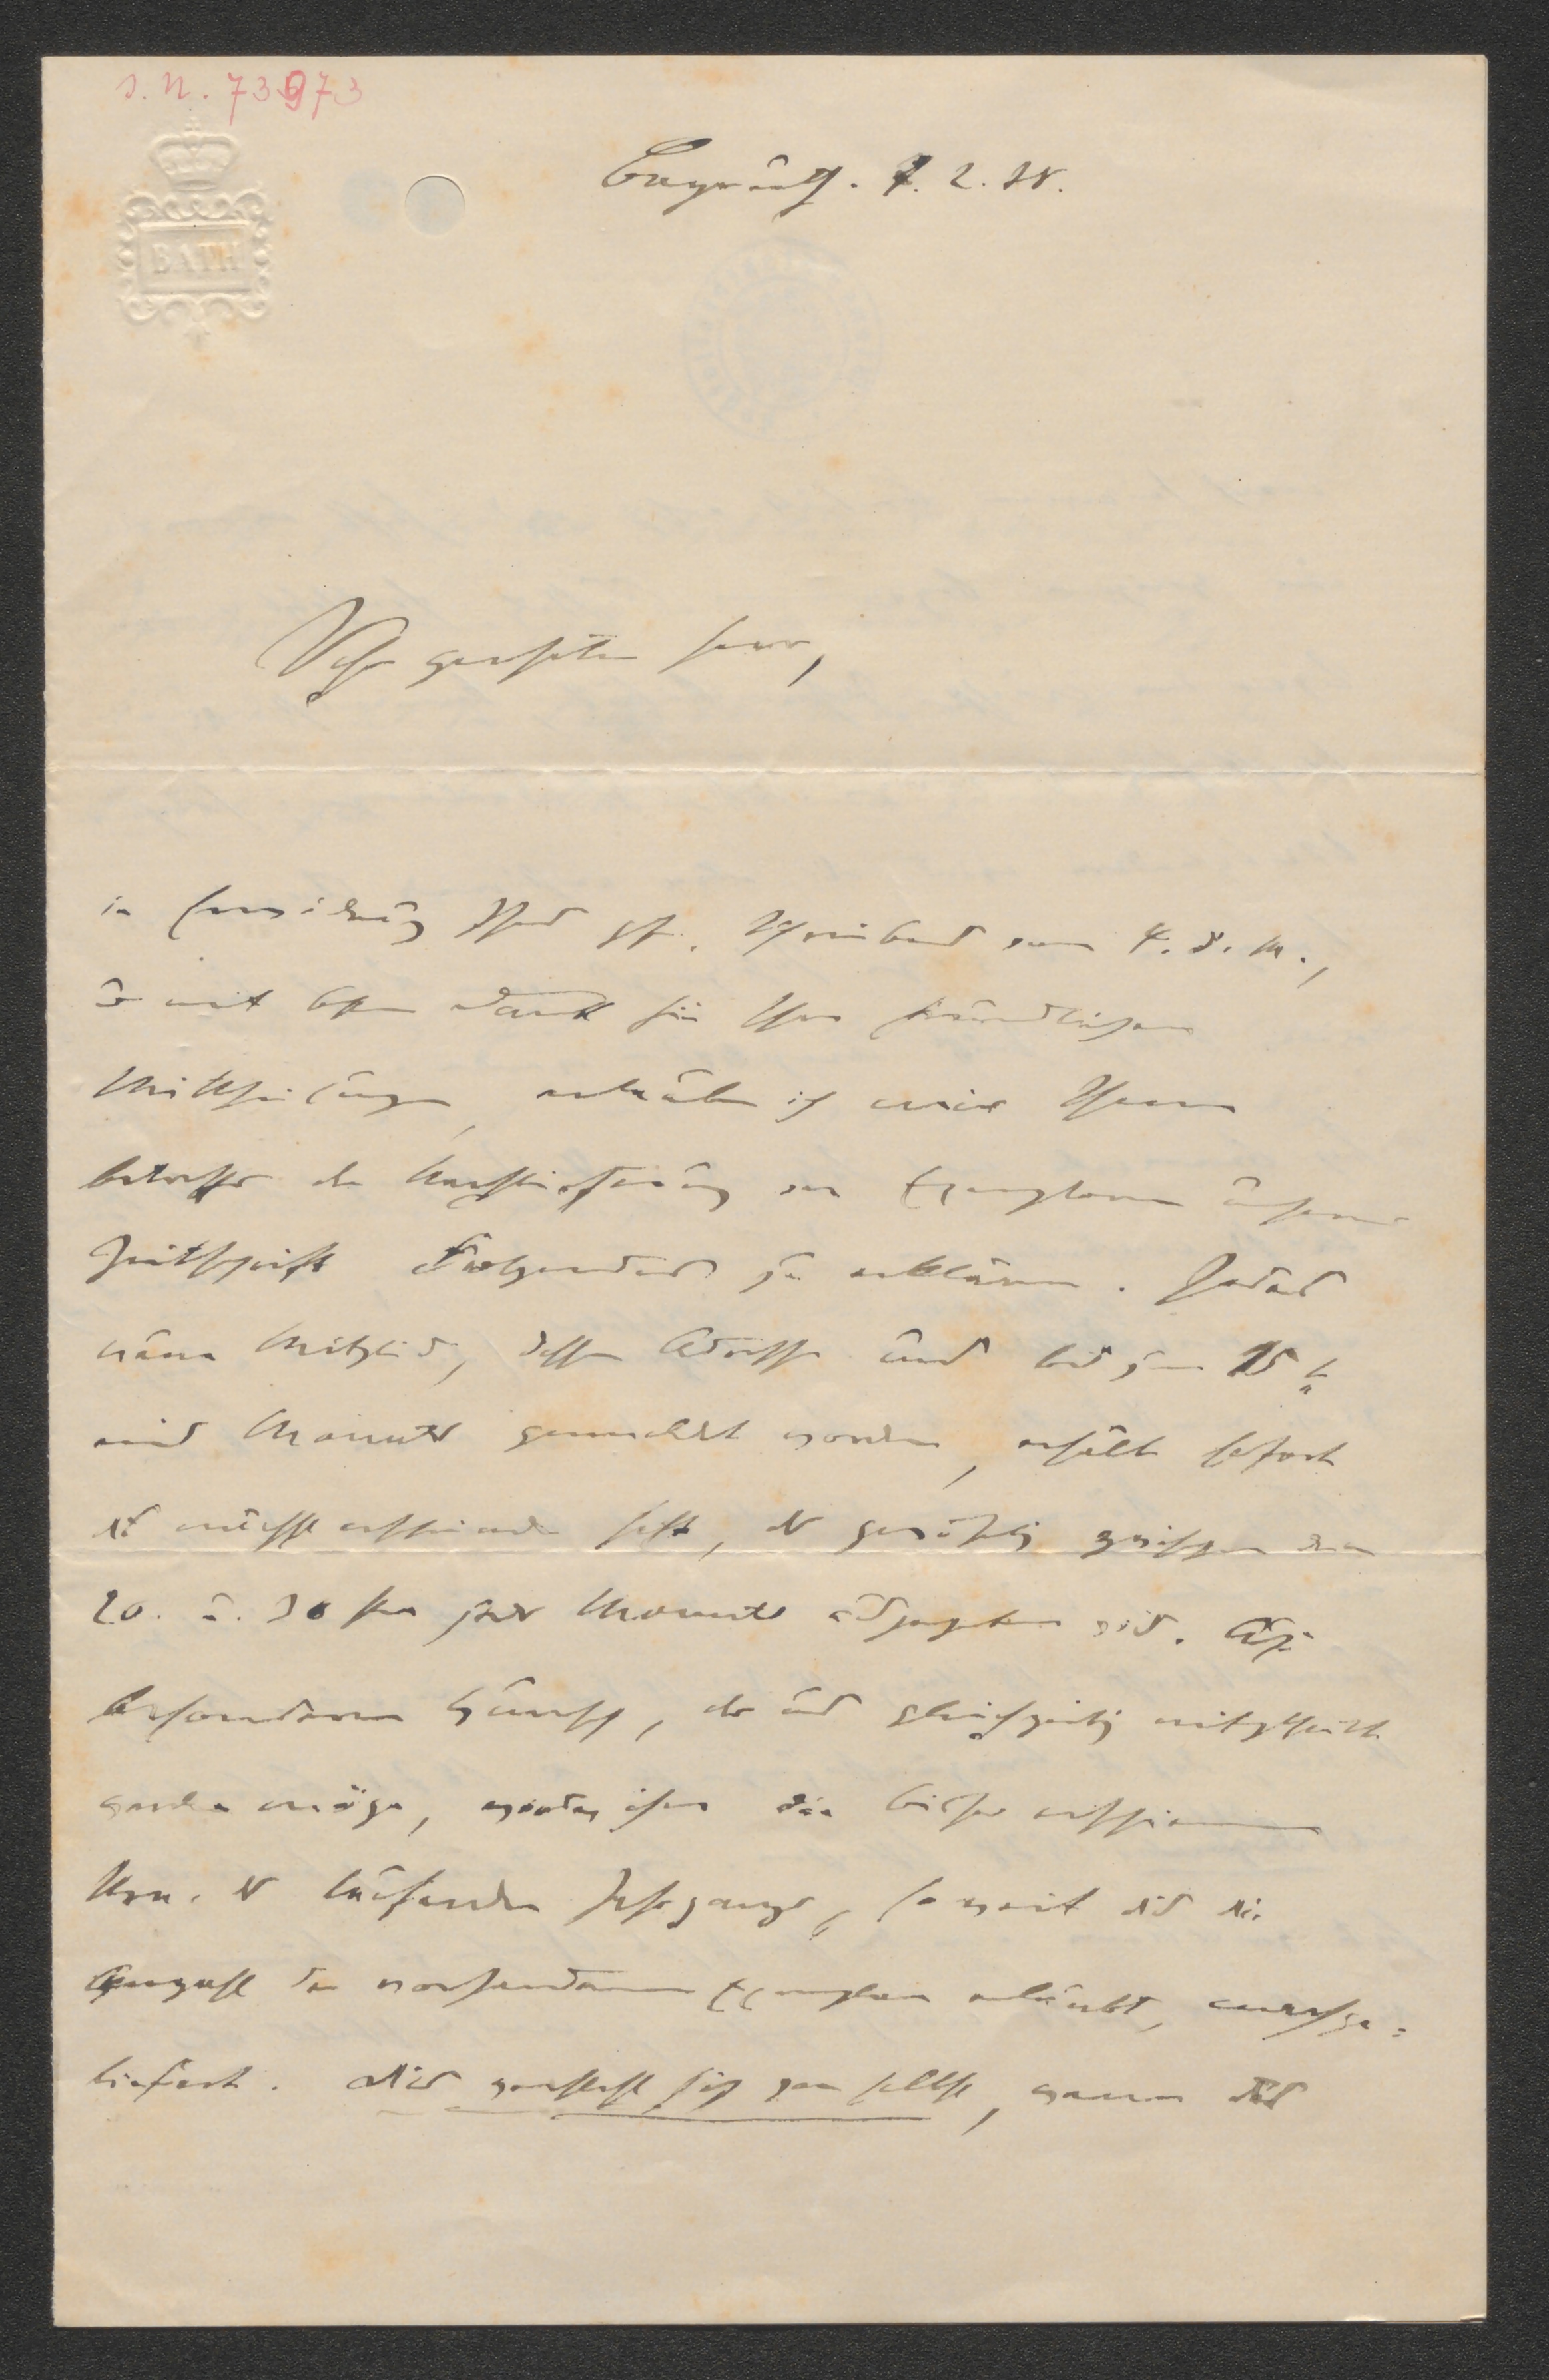 I. N. 73973
BATH
Bayreuth. 7. 2. 78.
Sehr geehrter Herr,
in Erwiderung Ihres gef. Schreibens vom 4. d. M.,
u. mit bestem Dank für Ihre freundlichen
Mittheilungen, erlaube ich mir Ihnen
betreffs der Nachlieferung von Exemplaren unserer
Zeitschrift Folgendes zu erklären. Jedes
neue Mitglied, dessen Adresse uns bis zum 15 ten
eines Monats gemeldet worden, erhält sofort
das nächst erscheinende Heft, das gewöhnlich zwischen dem
20. u. 30 sten jedes Monats ausgegeben wird. Auf
besonderen Wunsch, der uns gleichzeitig mitgetheilt
werden möge, werden ihm die bisher erschienenen
Nrn. des laufenden Jahrgangs, so weit dies die
Anzahl der vorhandenen Exemplare erlaubt, nachge=
liefert. Dies versteht sich von selbst, wenn das